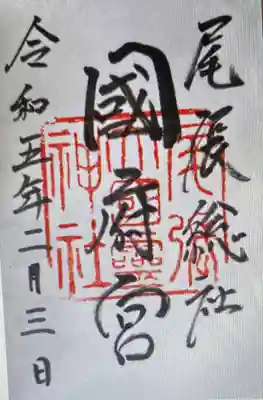 尾張総社
國府宮
令和五年二月三日